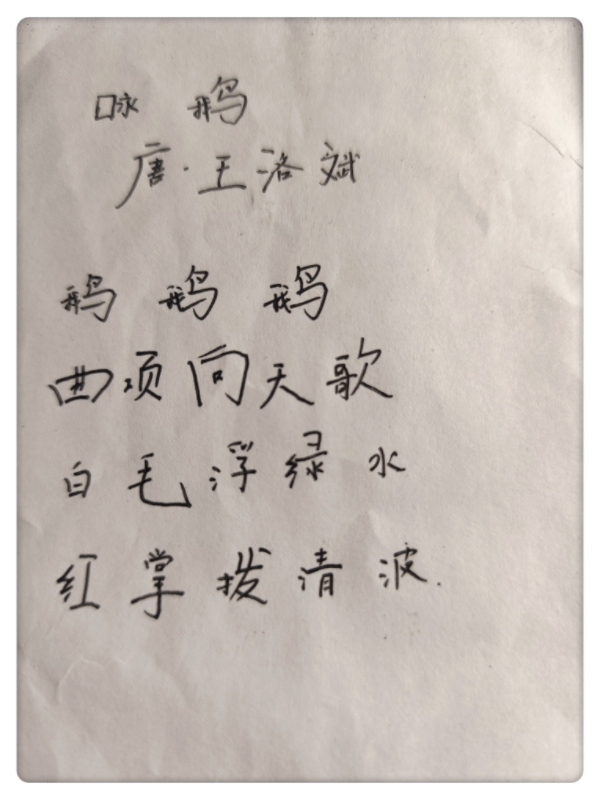 咏 鹅
唐·王洛斌
鹅 鹅 鹅
曲项向天歌
白毛浮绿水
红掌拨清波.